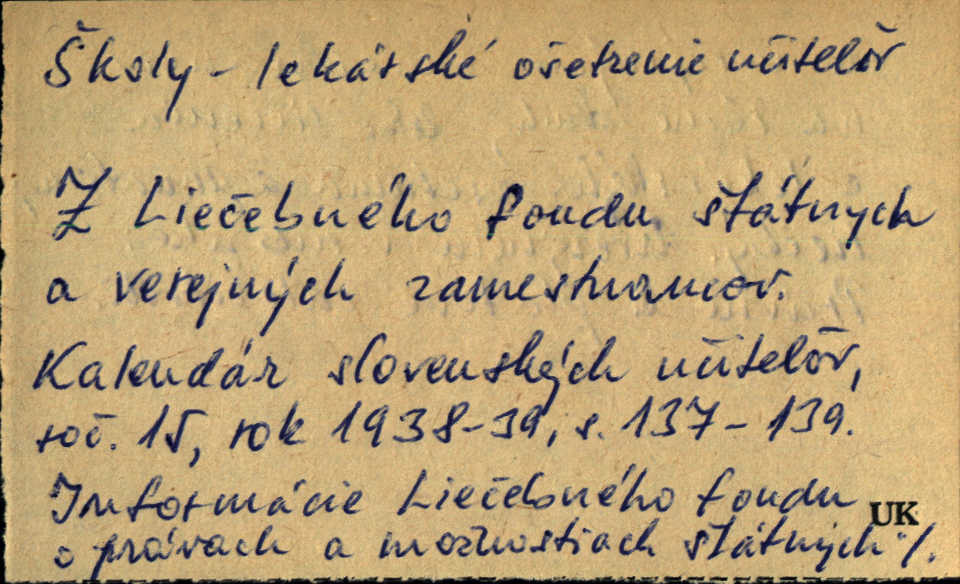 Školy - lekárské ošetrenie učitelov
Z Liečebného fondu štátnych
a verejných zamestnancov.
Kalendár slovenských učitelov,
roč. 15, rok 1938-39, s. 137-139.
Informácie Liečebného fondu
UK
o právach a možnostiach štátnych ./.